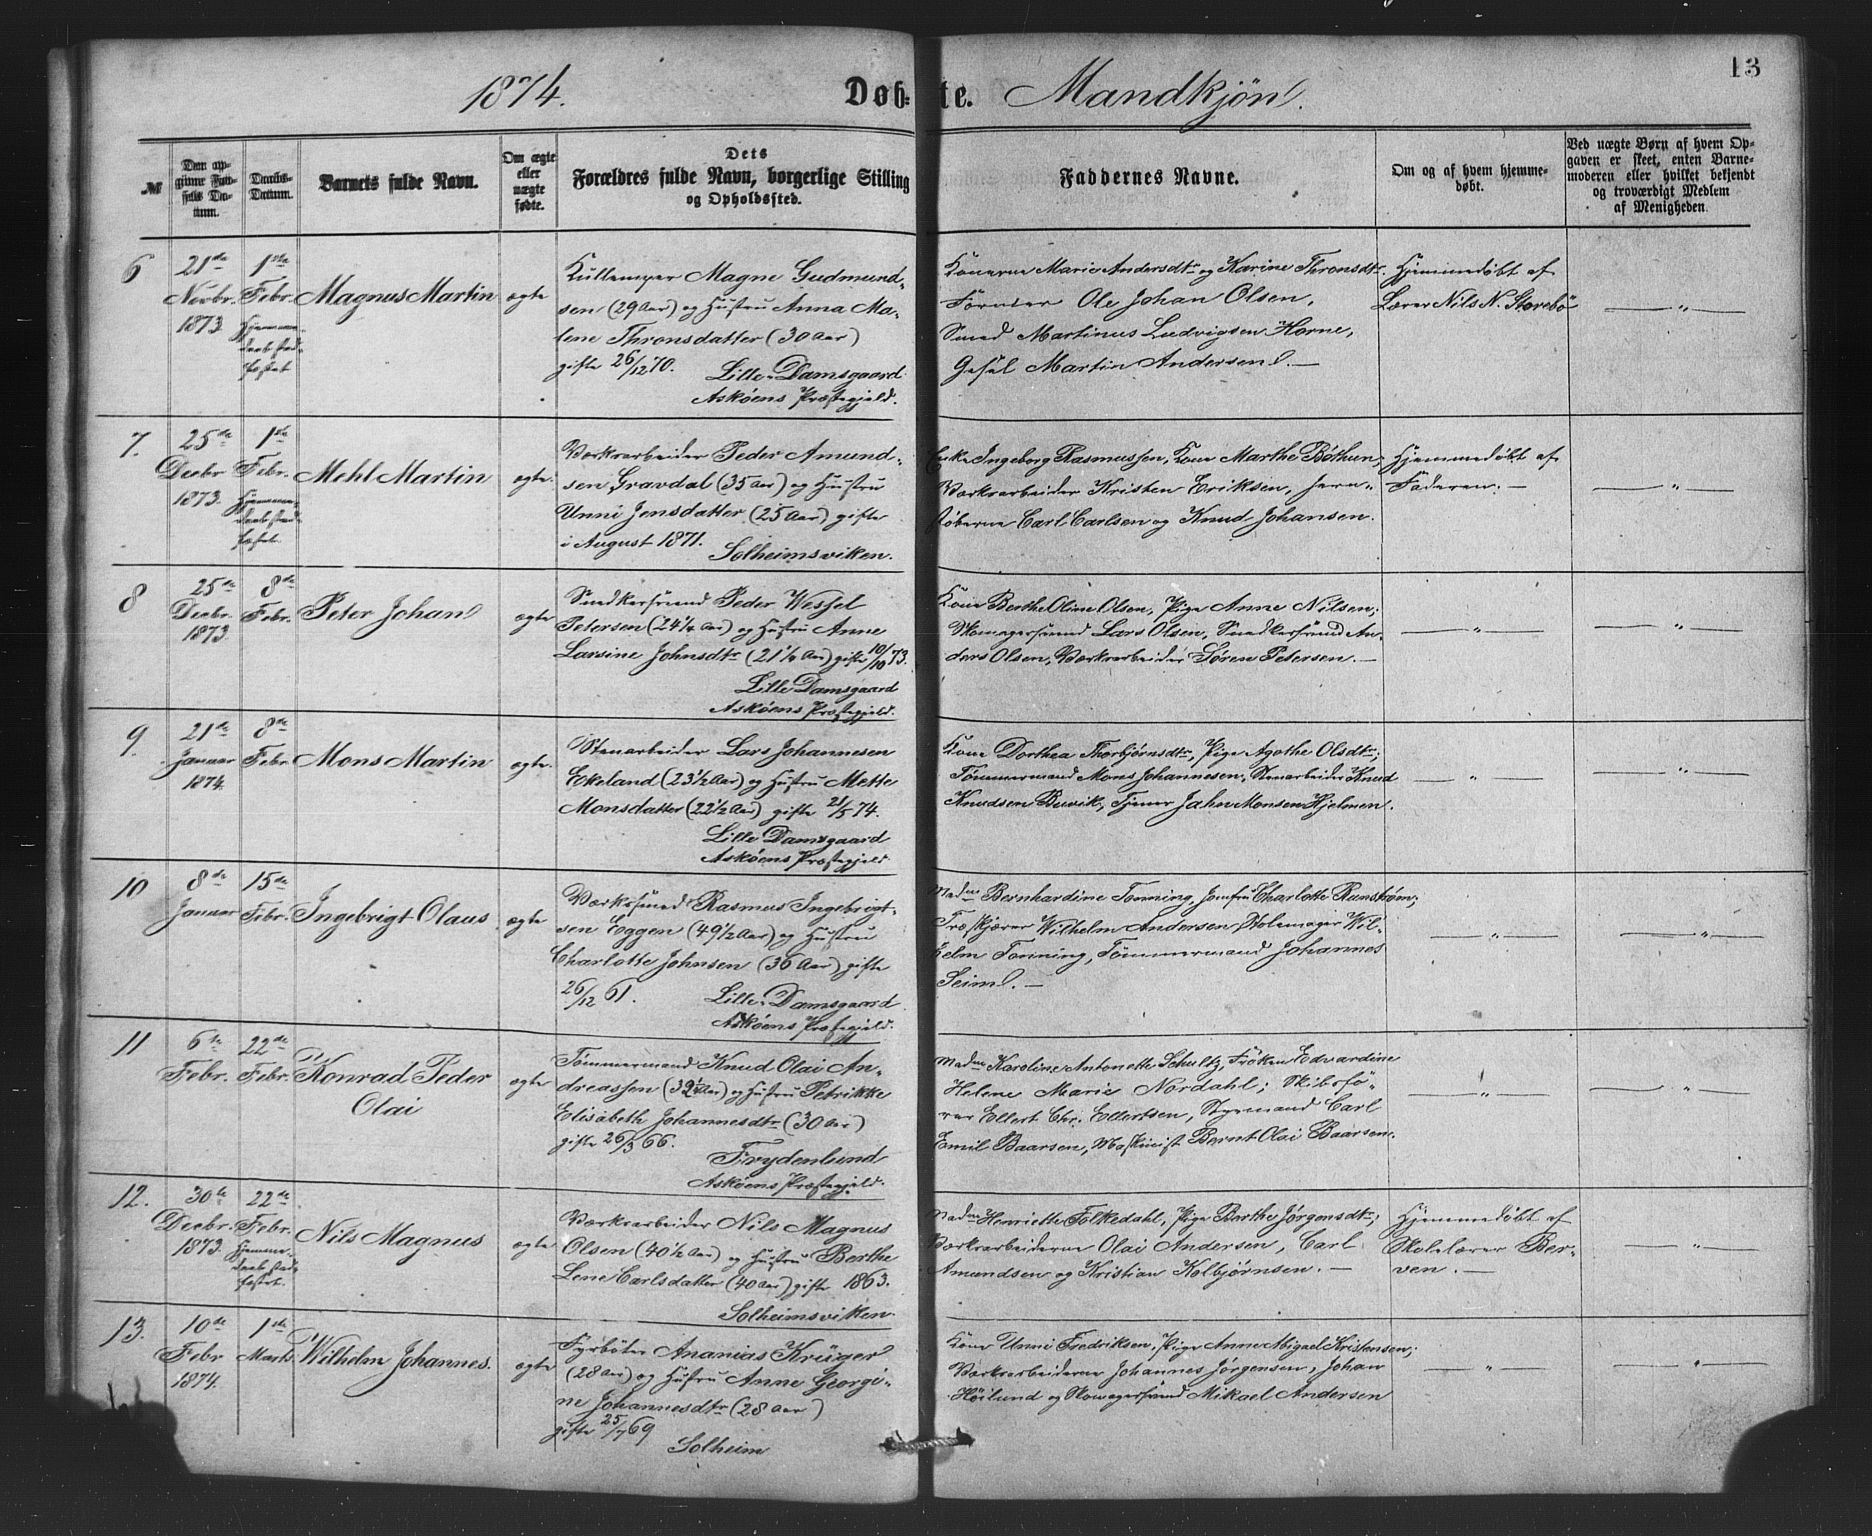 13
1874.
Døb-te. Mandkjøn.
№
Den opgivne Fødsels Datum.
Daabs-Datum.
Barnets fulde Navn.
Om ægte eller uægte fødte.
Dets
Forældres fulde Navn, borgerlige Stilling
og Opholdssted.
Faddernes Navne.
Om og af hvem hjemme-
døbt.
Ved uægte Børn af hvem Op-
gaven er skeet, enten Barne-
moderen eller hvilket bekjendt
og troværdigt Medlem
af Menigheden.
6
21de Novbr. 1873
1ste Febr. Hjemmedaab stadfæstet
Magnus Martin
ægte
Magne Gudmund-
sen (29 Aar) og Hustru Anna Ma-
lene Thronsdatter (30 Aar)
gifte 26/12 70. Lille-Damsgaard
Askøens Præstegjeld.
Konerne Marie Andersdtr og Karine Thronsdtr
Ole Johan Olsen,
Smed Martinus Ludvigsen Horne,
Martin Andersen. —
Hjemmedøbt af
Lærer Nils N. Storebø
— " —
7.
25de Decbr 1873.
1ste Febr. Hjemmedaab stadfæstet.
Mehl Martin
ægte.
Værksarbeider Peder Amund-
sen Gravdal (35 Aar) og Hustru
Unni Jensdatter (25 Aar) gifte
i August 1871. Solheimsviken.
Enke Ingeborg Rasmussen, Kone Marthe Bøthun,
Værksarbeider Kristen Eriksen, Jern-
støberne Carl Carlsen og Knud Johansen.
Hjemmedøbt af
Faderen. —
— " —
8
25de Decbr. 1873.
8de Febr.
Peter Johan
ægte
Snedkersvend Peder Wessel
Petersen (24¼ Aar) og Hustru Anne
Larsine Johnsdtr (21½ Aar) gifte 10/10 73.
Lille Damsgaard
Askøens Præstegjeld.
Kone Berthe Oline Olsen, Pige Anne Nilsen;
Skomagersvend Lars Olsen, Snedkersvend An-
ders Olsen, Værksarbeider Søren Petersen. —
— " —
— " —
9.
21de Januar 1874.
8de Febr
Mons Martin
ægte.
Stenarbeider Lars Johannesen
Ekeland (23½ Aar) og Hustru Mette
Monsdatter (22½ Aar) gifte 21/5 74.
Lille Damsgaard
Askøens Præstegjeld
Kone Dorthea Thorbjørnsdtr, Pige Agothe Olsdtr;
Tømmermand Mons Johannesen, Stenarbeider Knud
Knudsen Buvik, Tjener Jahn Monsen Hjelmen.
— " —
— " —
10
8de Januar
15de Febr.
Ingebrigt Olaus
ægte
Værkssmed Rasmus Ingebrigt-
sen Eggen (49½ Aar) og Hustru
Charlotte Johnsen (36 Aar) gifte
26/12 61. Lille-Damsgaard
Askøens Præstegjeld.
Madm Bernhardine Tonning, Jomfru Charlotte Runstrøm;
Træskjærer Wilhelm Andersen, Stolemager Wil-
helm Tonning, Tømmermand Johannes
Seim. —
— " —
— " —
11
6te Febr.
22de Febr.
Konrad Peder
Olai
ægte
Tømmermand Knud Olai An-
dreassen (39½ Aar) og Hustru Petrikke
Elisabeth Johannesdtr. (30 Aar)
gifte 26/3 66.
Frydenlund
Askøens Præstegjeld.
Madm Karoline Antonette Schultz, Frøken Edvardine
Helene Marie Nordahl; Skibsfø-
rer Ellert Chr. Ellertsen, Styrmand Carl
Emil Baarsen, Maskinist Bernt Olai Baarsen.
— " —
— " —
12.
30te Decbr. 1873.
22de Febr. Hjemmedaab stadfæstet.
Nils Magnus
ægte
Værksarbeider Nils Magnus
Olsen (40½ Aar) og Hustru Berthe
Lene Carlsdatter (40 Aar) gifte 1863.
Solheimsviken.
Madm Henriette Folkedahl, Pige Barthe Jørgensdtr;
Værksarbeiderne Olai Andersen, Carl
Amundsen og Kristian Kolbjørnsen. —
Hjemmedøbt af
Skolelærer Ber-
ven. —
— " —
13.
10de Febr 1874.
1ste Marts
Wilhelm Johannes.
ægte
Fyrbøter Ananias Krüger
(28 Aar) og Hustru Anne Georgi-
ne Johannesdtr (28 Aar)
gifte 25/7 69
Solheim
Kone Unni Fredriksen, Pige Anne Abigael Kristensen;
Værksarbeiderne Johannes Jørgensen, Johan
Høilund og Skomagersvend Mikael Andersen
— " —
— " —